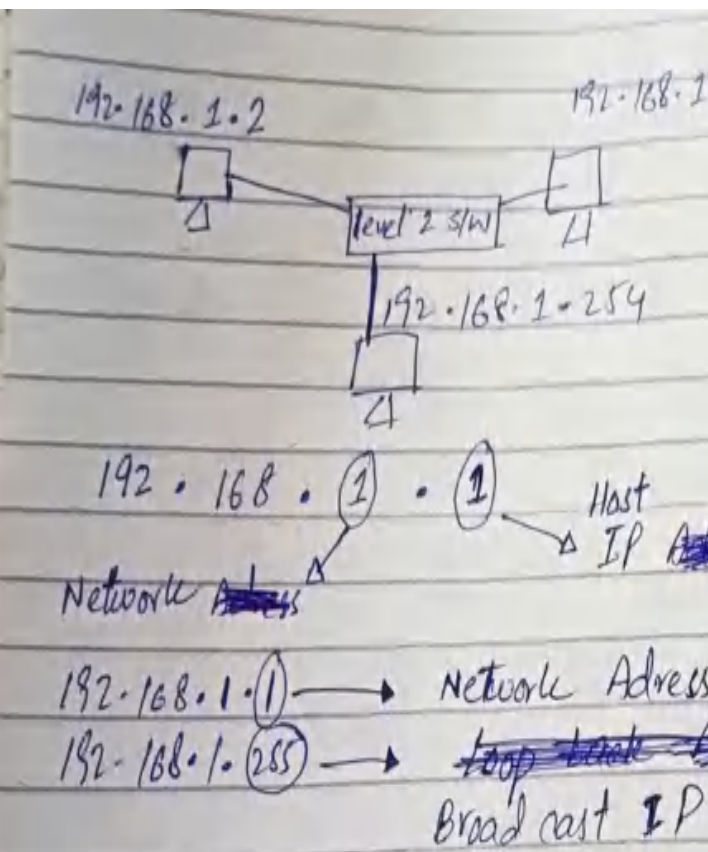 192.168.1.2
192.168.1
level 2 S/W
192.168.1.254
192.168.1.1
Host
IP
Network
192.168.1.1 → Network Adress
192.168.1.255 →
Broad cast IP